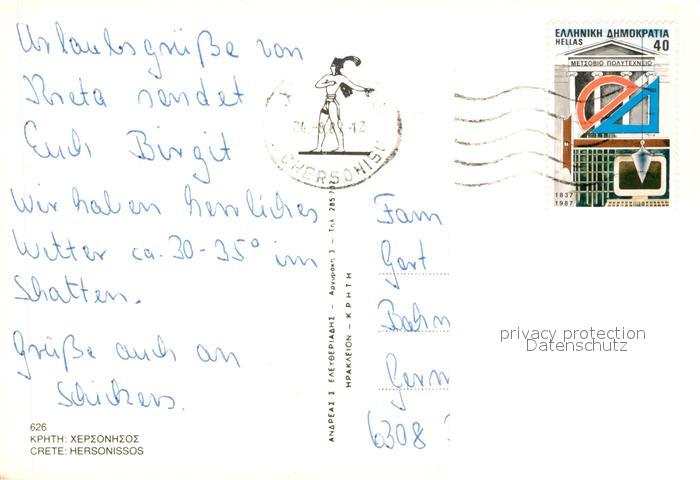 Urlaubsgrüße von
Kreta sendet
Euch Birgit
Wir haben herrliches
Wetter ca. 30-35° im
Schatten.
Grüße auch an
Schickers.
626
ΚΡΗΤΗ: ΧΕΡΣΟΝΗΣΟΣ
CRETE: HERSONISSOS
ΑΝΔΡΕΑΣ Σ ΕΛΕΥΘΕΡΙΑΔΗΣ – Αργυράκη 3 – Τηλ. 285
ΗΡΑΚΛΕΙΟΝ – ΚΡΗΤΗ
CHERSONISOU
ΕΛΛΗΝΙΚΗ ΔΗΜΟΚΡΑΤΙΑ
HELLAS 40
ΜΕΤΣΟΒΙΟ ΠΟΛΥΤΕΧΝΕΙΟ
1837
1987
Fam
Gert
Bahn
Germ
6308
privacy protection
Datenschutz